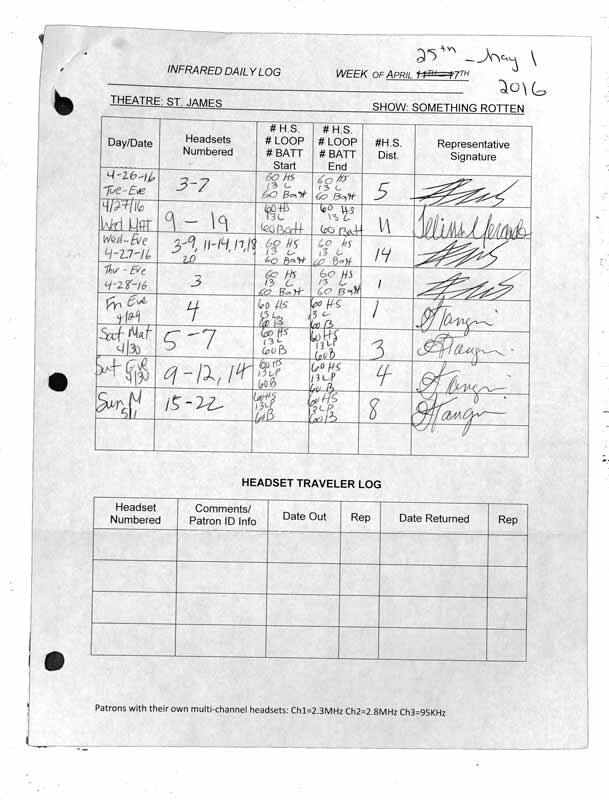 25th - May 1
INFRARED DAILY LOG WEEK OF APRIL 11TH - 17TH
2016
THEATRE: ST. JAMES SHOW: SOMETHING ROTTEN
Day/Date Headsets Numbered # H.S. # LOOP # BATT Start # H.S. # LOOP # BATT End #H.S. Dist. Representative Signature
4-26-16 Tue-Eve 3-7 60 HS 13 L 60 Batt 60 HS 13 L 60 Batt 5
4/27/16 Wed MAT 9 - 19 60 HS 13 L 60 Batt 60 HS 13 L 60 Batt 11
Wed-Eve 4-27-16 3-9, 11-14, 17, 18, 20 60 HS 13 L 60 Batt 60 HS 13 L 60 Batt 14
Thu-Eve 4-28-16 3 60 HS 13 L 60 Batt 60 HS 13 L 60 Batt 1
Fri Eve 4/29 4 60 HS 13 L 60 B 60 HS 13 L 60 B 1
Sat Mat 4/30 5-7 60 HS 13 L 60 B 60 HS 13 LP 60 B 3
Sat Eve 4/30 9-12, 14 60 HS 13 LP 60 B 60 HS 13 LP 60 B 4
Sun M 5/1 15-22 60 HS 13 LP 60 B 60 HS 13 LP 60 B 8
HEADSET TRAVELER LOG
Headset Numbered Comments/ Patron ID Info Date Out Rep Date Returned Rep
Patrons with their own multi-channel headsets: Ch1=2.3MHz Ch2=2.8MHz Ch3=95KHz